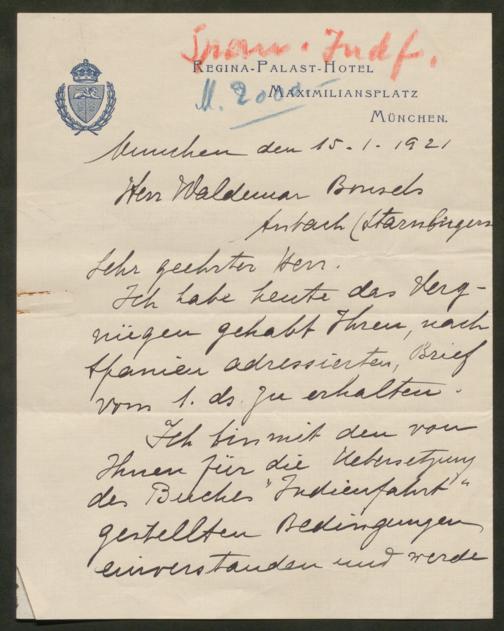 Span. Indf.
REGINA-PALAST-HOTEL
M. 2000
MAXIMILIANSPLATZ
MÜNCHEN.
Munchen den 15-1. 1921
Herr Waldemar Bonsels
Ambach (Starnbergers
Sehr geehrter Herr.
Ich habe heute das Verg-
nügen gehabt Ihren, nach
Spanien adressierten, Brief
vom 1. ds. zu erhalten.
Ich bin mit den von
Ihnen für die Uebersetzung
des Buches "Indienfahrt"
gestellten Bedingungen
einverstanden und werde